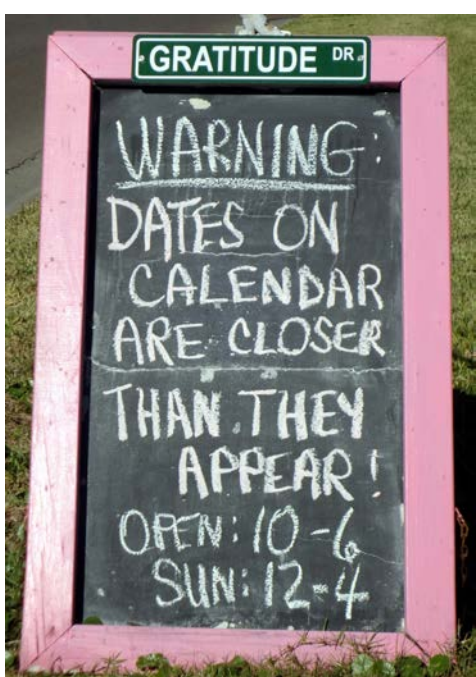 GRATITUDE DR
WARNING:
DATES ON
CALENDAR
ARE CLOSER
THAN THEY
APPEAR!
OPEN: 10-6
SUN: 12-4